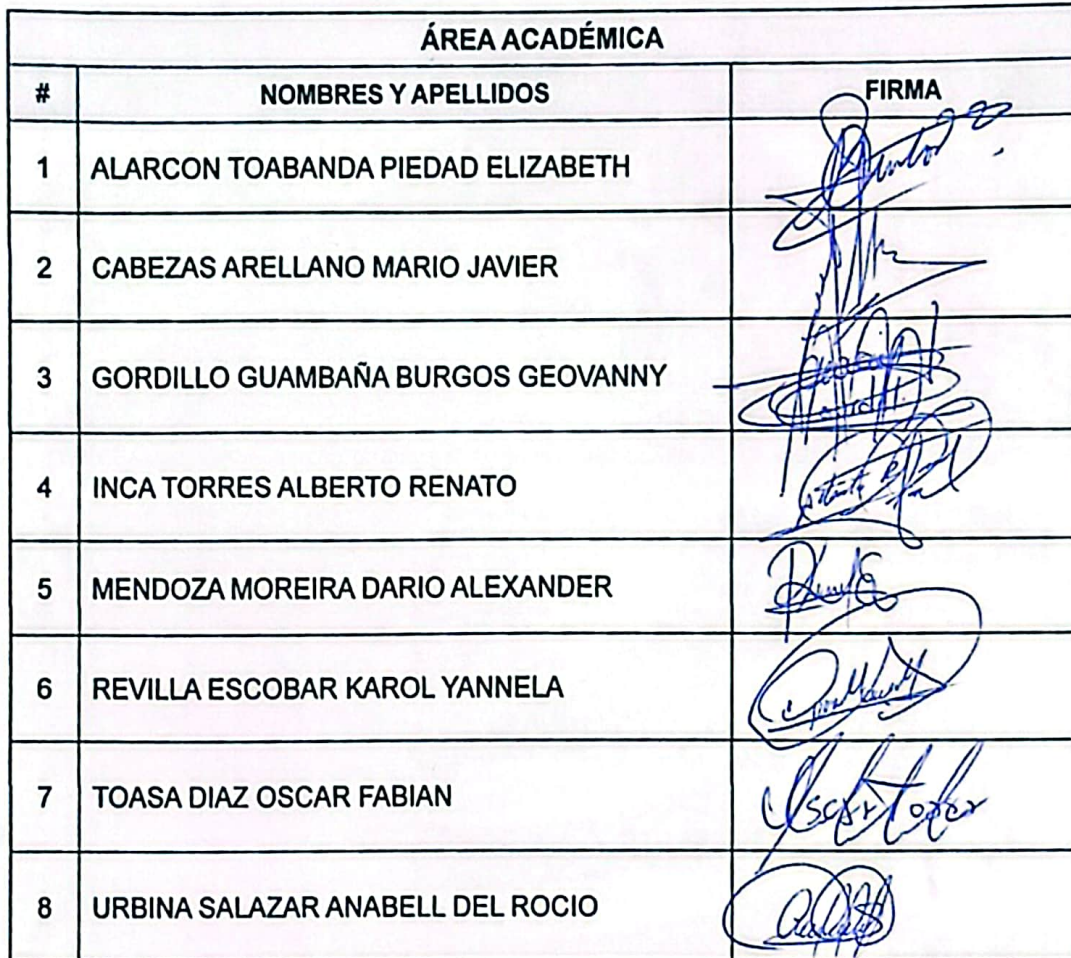 ÁREA ACADÉMICA
# NOMBRES Y APELLIDOS FIRMA
1 ALARCON TOABANDA PIEDAD ELIZABETH
2 CABEZAS ARELLANO MARIO JAVIER
3 GORDILLO GUAMBAÑA BURGOS GEOVANNY
4 INCA TORRES ALBERTO RENATO
5 MENDOZA MOREIRA DARIO ALEXANDER
6 REVILLA ESCOBAR KAROL YANNELA
7 TOASA DIAZ OSCAR FABIAN Oscar Toasa
8 URBINA SALAZAR ANABELL DEL ROCIO